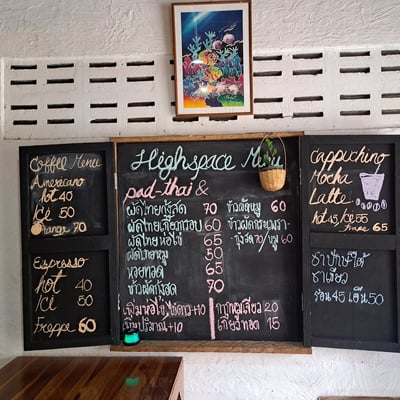 Coffee Menu
Americano
hot 40
Ice 50
Orange 70
Espresso
hot 40
Ice 50
Freppe 60
Highspace Menu
pad-thai &
ผัดไทยกุ้งสด 70
ผัดไทยเกี๊ยวกรอบ 60
ผัดไทยห่อไข่ 65
ผัดไทยหมู 50
หอยทอด 65
ข้าวผัดกุ้งสด 65
ข้าวผัดหมู 60
ข้าวผัดกระเพรา
กุ้งสด 70/หมู 60
เพิ่มห่อไข่ ไข่ดาว +10
เพิ่มปริมาณ +10
20
เกี๊ยวทอด 15
Cappuchino
Mocha
Latte
hot 45/Ice 55
Frape 65
ชาปักษ์ใต้
ชาเขียว
ร้อน 45 เย็น 50